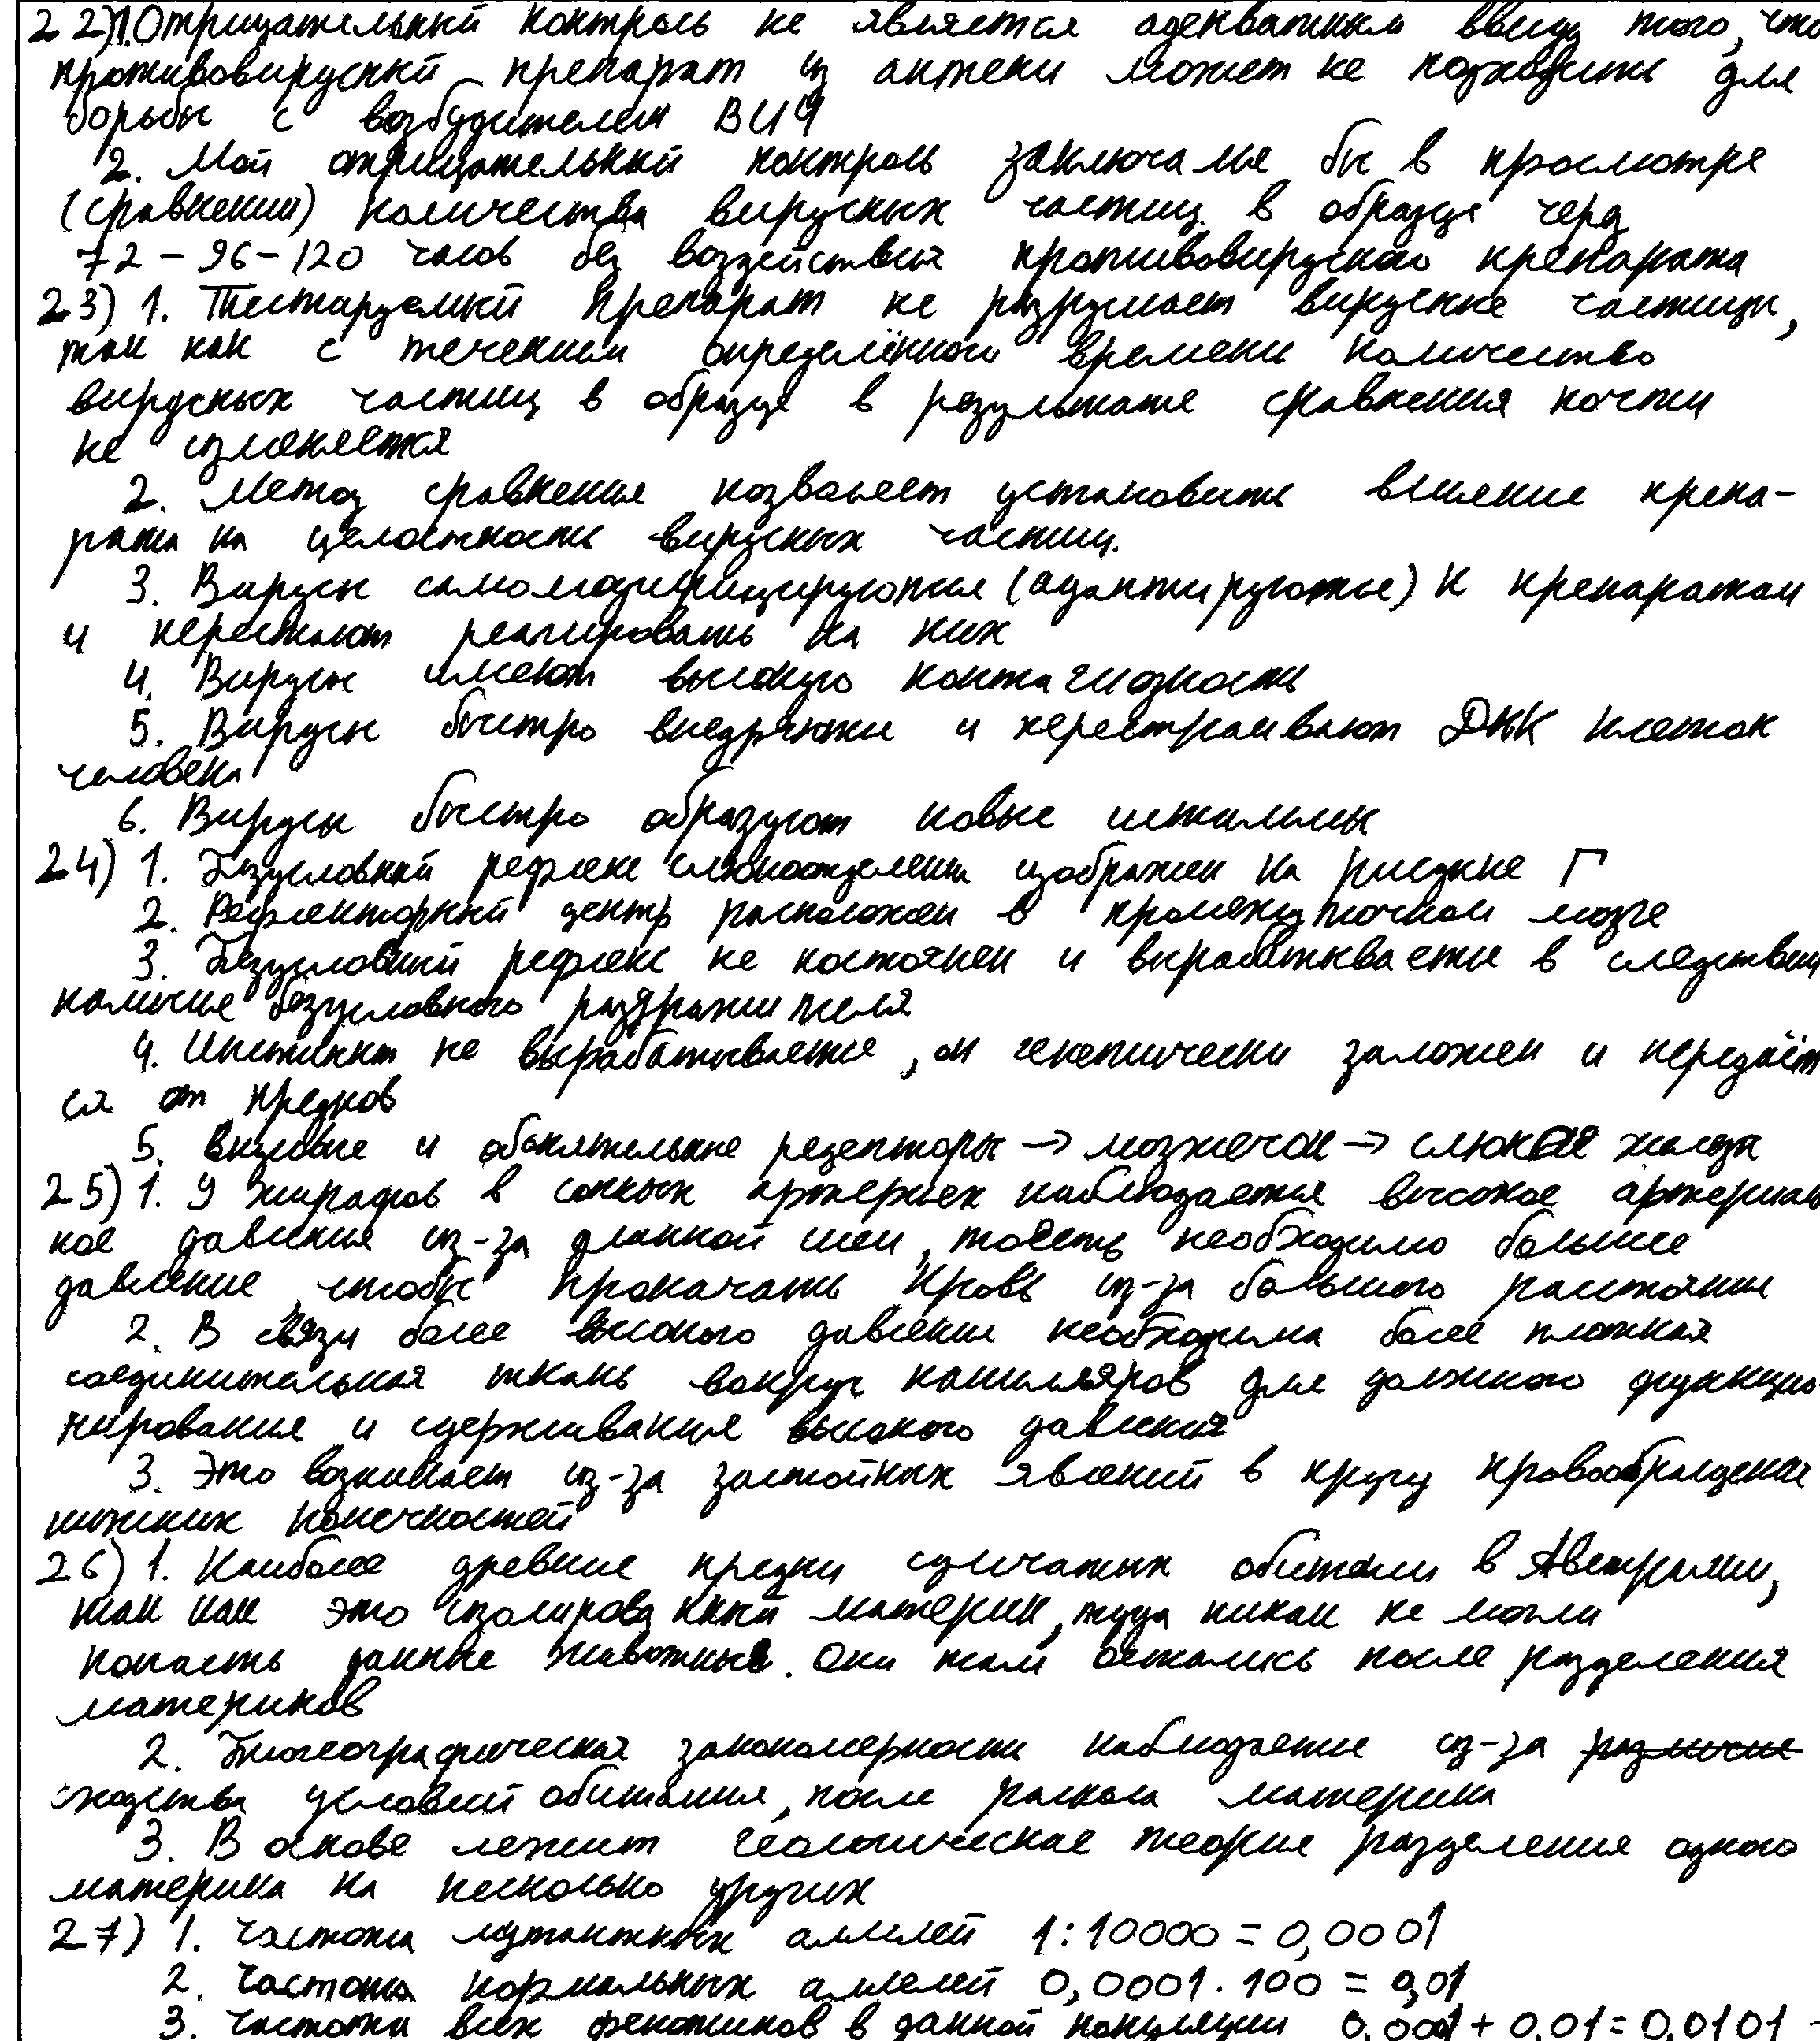 22) 1. Отрицательный контроль не является адекватным ввиду того, что
противовирусный препарат из аптеки может не подходить для
борьбы с возбудителем ВИЧ
2. Мой отрицательный контроль заключался бы в просмотре
(сравнении) количества вирусных частиц в образце через
72 - 96 - 120 часов без воздействия противовирусного препарата
23) 1. Тестируемый препарат не разрушает вирусные частицы,
так как с течением определённого времени количество
вирусных частиц в образце в результате сравнения почти
не изменяется
2. Метод сравнения позволяет установить влияние препа-
рата на целостность вирусных частиц.
3. Вирусы самомодифицируются (адаптируются) к препаратам
и перестают реагировать на них
4. Вирусы имеют высокую контагиозность
5. Вирусы быстро внедряются и перестраивают ДНК клеток
человека
6. Вирусы быстро образуют новые штаммы
24) 1. Безусловный рефлекс слюноотделения изображен на рисунке Г
2. Рефлекторный центр расположен в промежуточном мозге
3. Безусловный рефлекс не постоянен и вырабатывается в следствии
наличие безусловного раздражителя
4. Инстинкт не вырабатывается, он генетически заложен и передаёт
ся от предков
5. Вкусовые и обонятельные рецепторы → мозжечок → слюная железа
25) 1. У жирафов в сонных артериях наблюдается высокое артериаль
ное давления из-за длинной шеи, тоесть необходимо большее
давление, чтобы прокачать кровь из-за большого расстояния
2. В связи более высокого давления необходима более плотная
соединительная ткань вокруг капилляров для должного функцио-
нирования и сдерживания высокого давления
3. Это возникает из-за застойных явлений в кругу кровообращения
нижних конечностей
26) 1. Наиболее древние предки сумчатых обитали в Австралии,
так как это изолированный материк, туда никак не могли
попасть данные животные. Они там остались после разделения
материков
2. Биогеографическая закономерность наблюдается из-за различие
сходства условий обитания, после раскола материка
3. В основе лежит геологическая теория разделения одного
материка на несколько других
27) 1. Частота мутантных аллелей 1:10000 = 0,0001
2. Частота нормальных аллелей 0,0001 · 100 = 0,01
3. Частота всех фенотипов в данной популяции 0,0001 + 0,01 = 0,0101